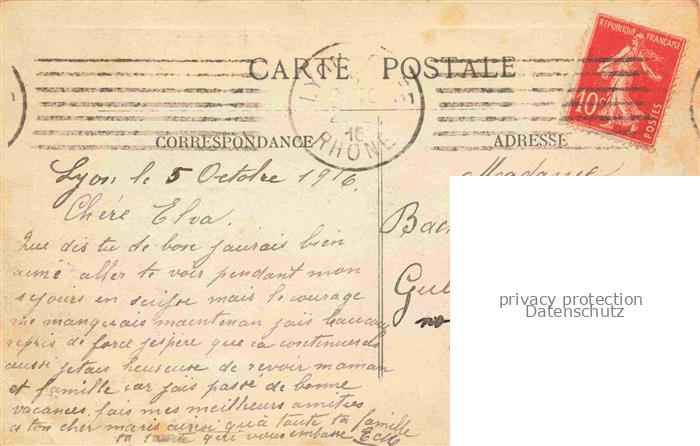 CARTE POSTALE
REPUBLIQUE FRANÇAISE
10c
POSTES
LYON
16
RHÔNE
CORRESPONDANCE
ADRESSE
Lyon le 5 Octobre 1916.
Madame
Chére Elva.
Que dis tu de bon jaurais bien
aimé aller te voir pendant mon
sejours en suisse mais le courage
me manquerais maintenan jais beaucoup
repris de force jespere que ca continueras
aussi jetais heureuse de revoir maman
et famille car jais passé de bonne
vacances fais mes meilleurs amitiés
a ton cher maris ainsi qu'a toute ta famille
ta qui vous embasse
privacy protection
Datenschutz